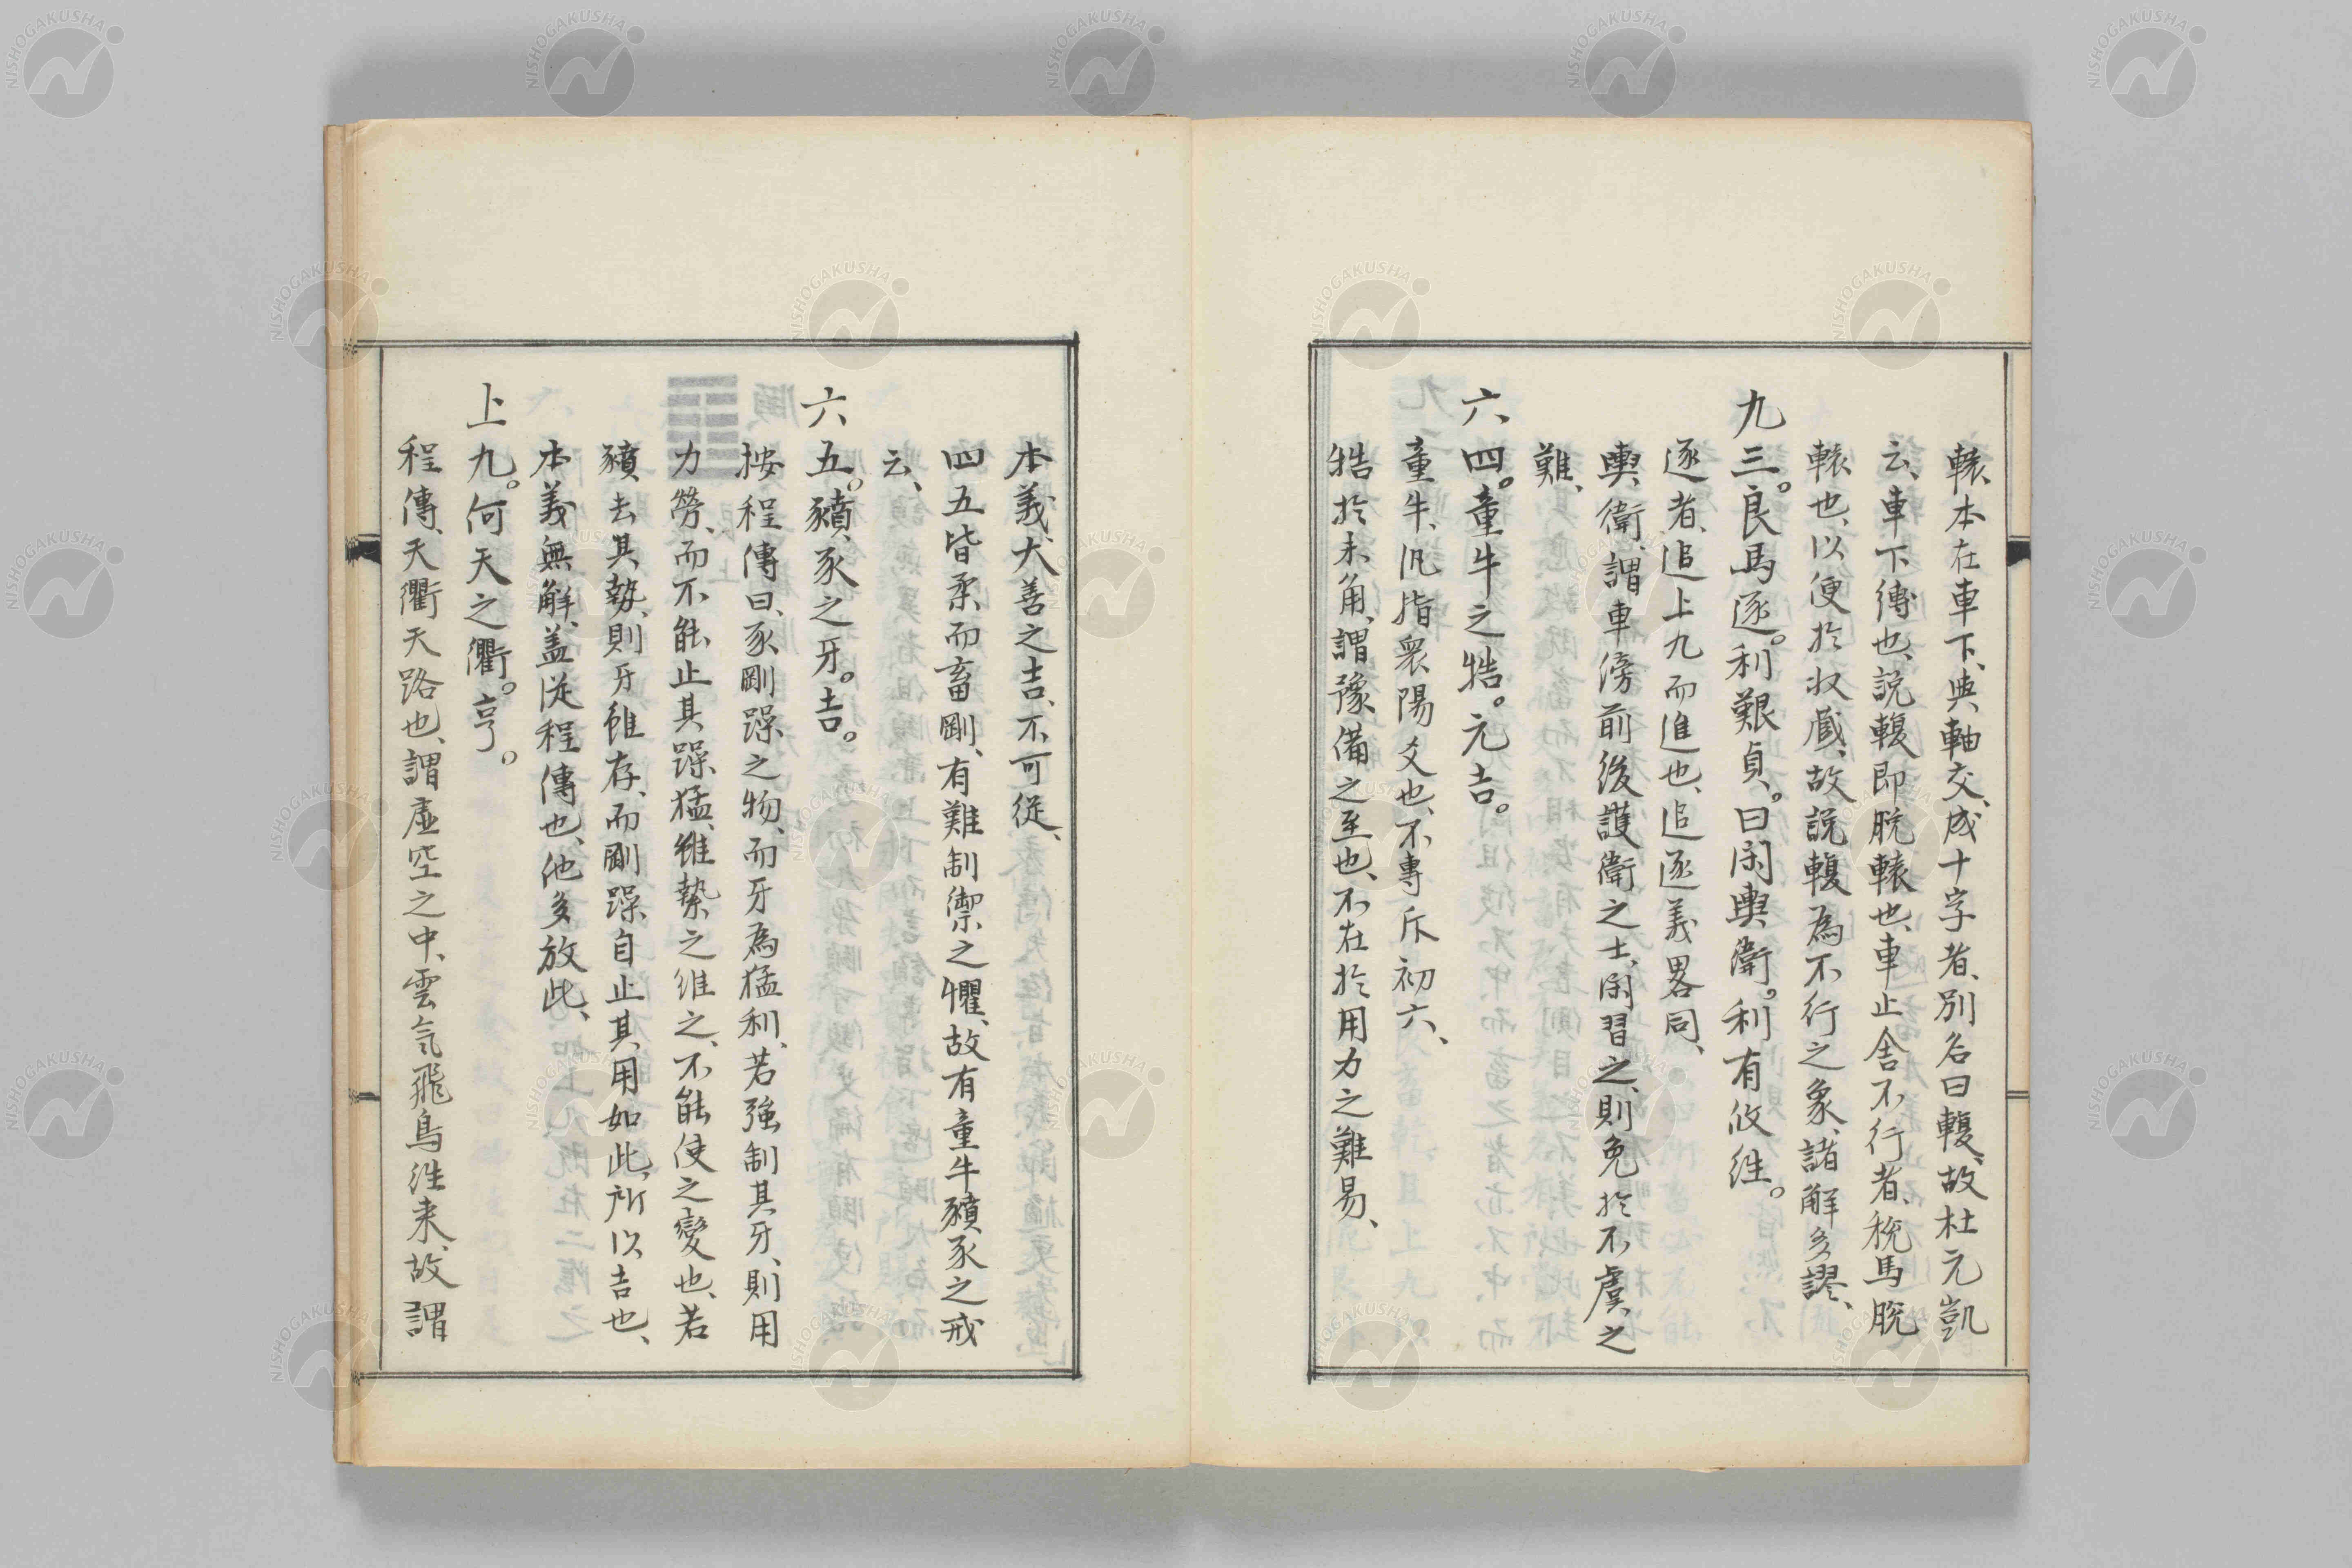 轅、本在車下、與軸交、成十字者、別名曰輹、故杜元凱
云、車下縛也、説輹即脫轅也、車止舍不行者、稅馬脫
轅也、以便於收蔵、故説輹為不行之象、諸解多謬、
九三。良馬逐。利艱貞。曰閑輿衛。利有攸往。
逐者、追上九而進也、追逐義畧同、
輿衛、謂車傍前後護衛之士、閑習之、則免於不虞之
難、
六四。童牛之牿。元吉。
童牛、汎指衆陽爻也、不專斥初六、
牿於未角、謂豫備之至也、不在於用力之難易、
本義、大善之吉、不可從、
四五皆柔而畜剛、有難制禦之懼、故有童牛豶豕之戒
云、
六五。豶豕之牙。吉。
按程傳曰、豕剛躁之物、而牙為猛利、若強制其牙、則用
力勞、而不能止其躁猛、雖縶之維之、不能使之變也、若
豶去其勢、則牙雖存、而剛躁自止、其用如此、所以吉也、
本義無解、盖從程傳也、他多放此、
上九。何天之衢。亨。
程傳、天衢天路也、謂虛空之中、雲氣飛鳥往来、故謂
NISHOGAKUSHA